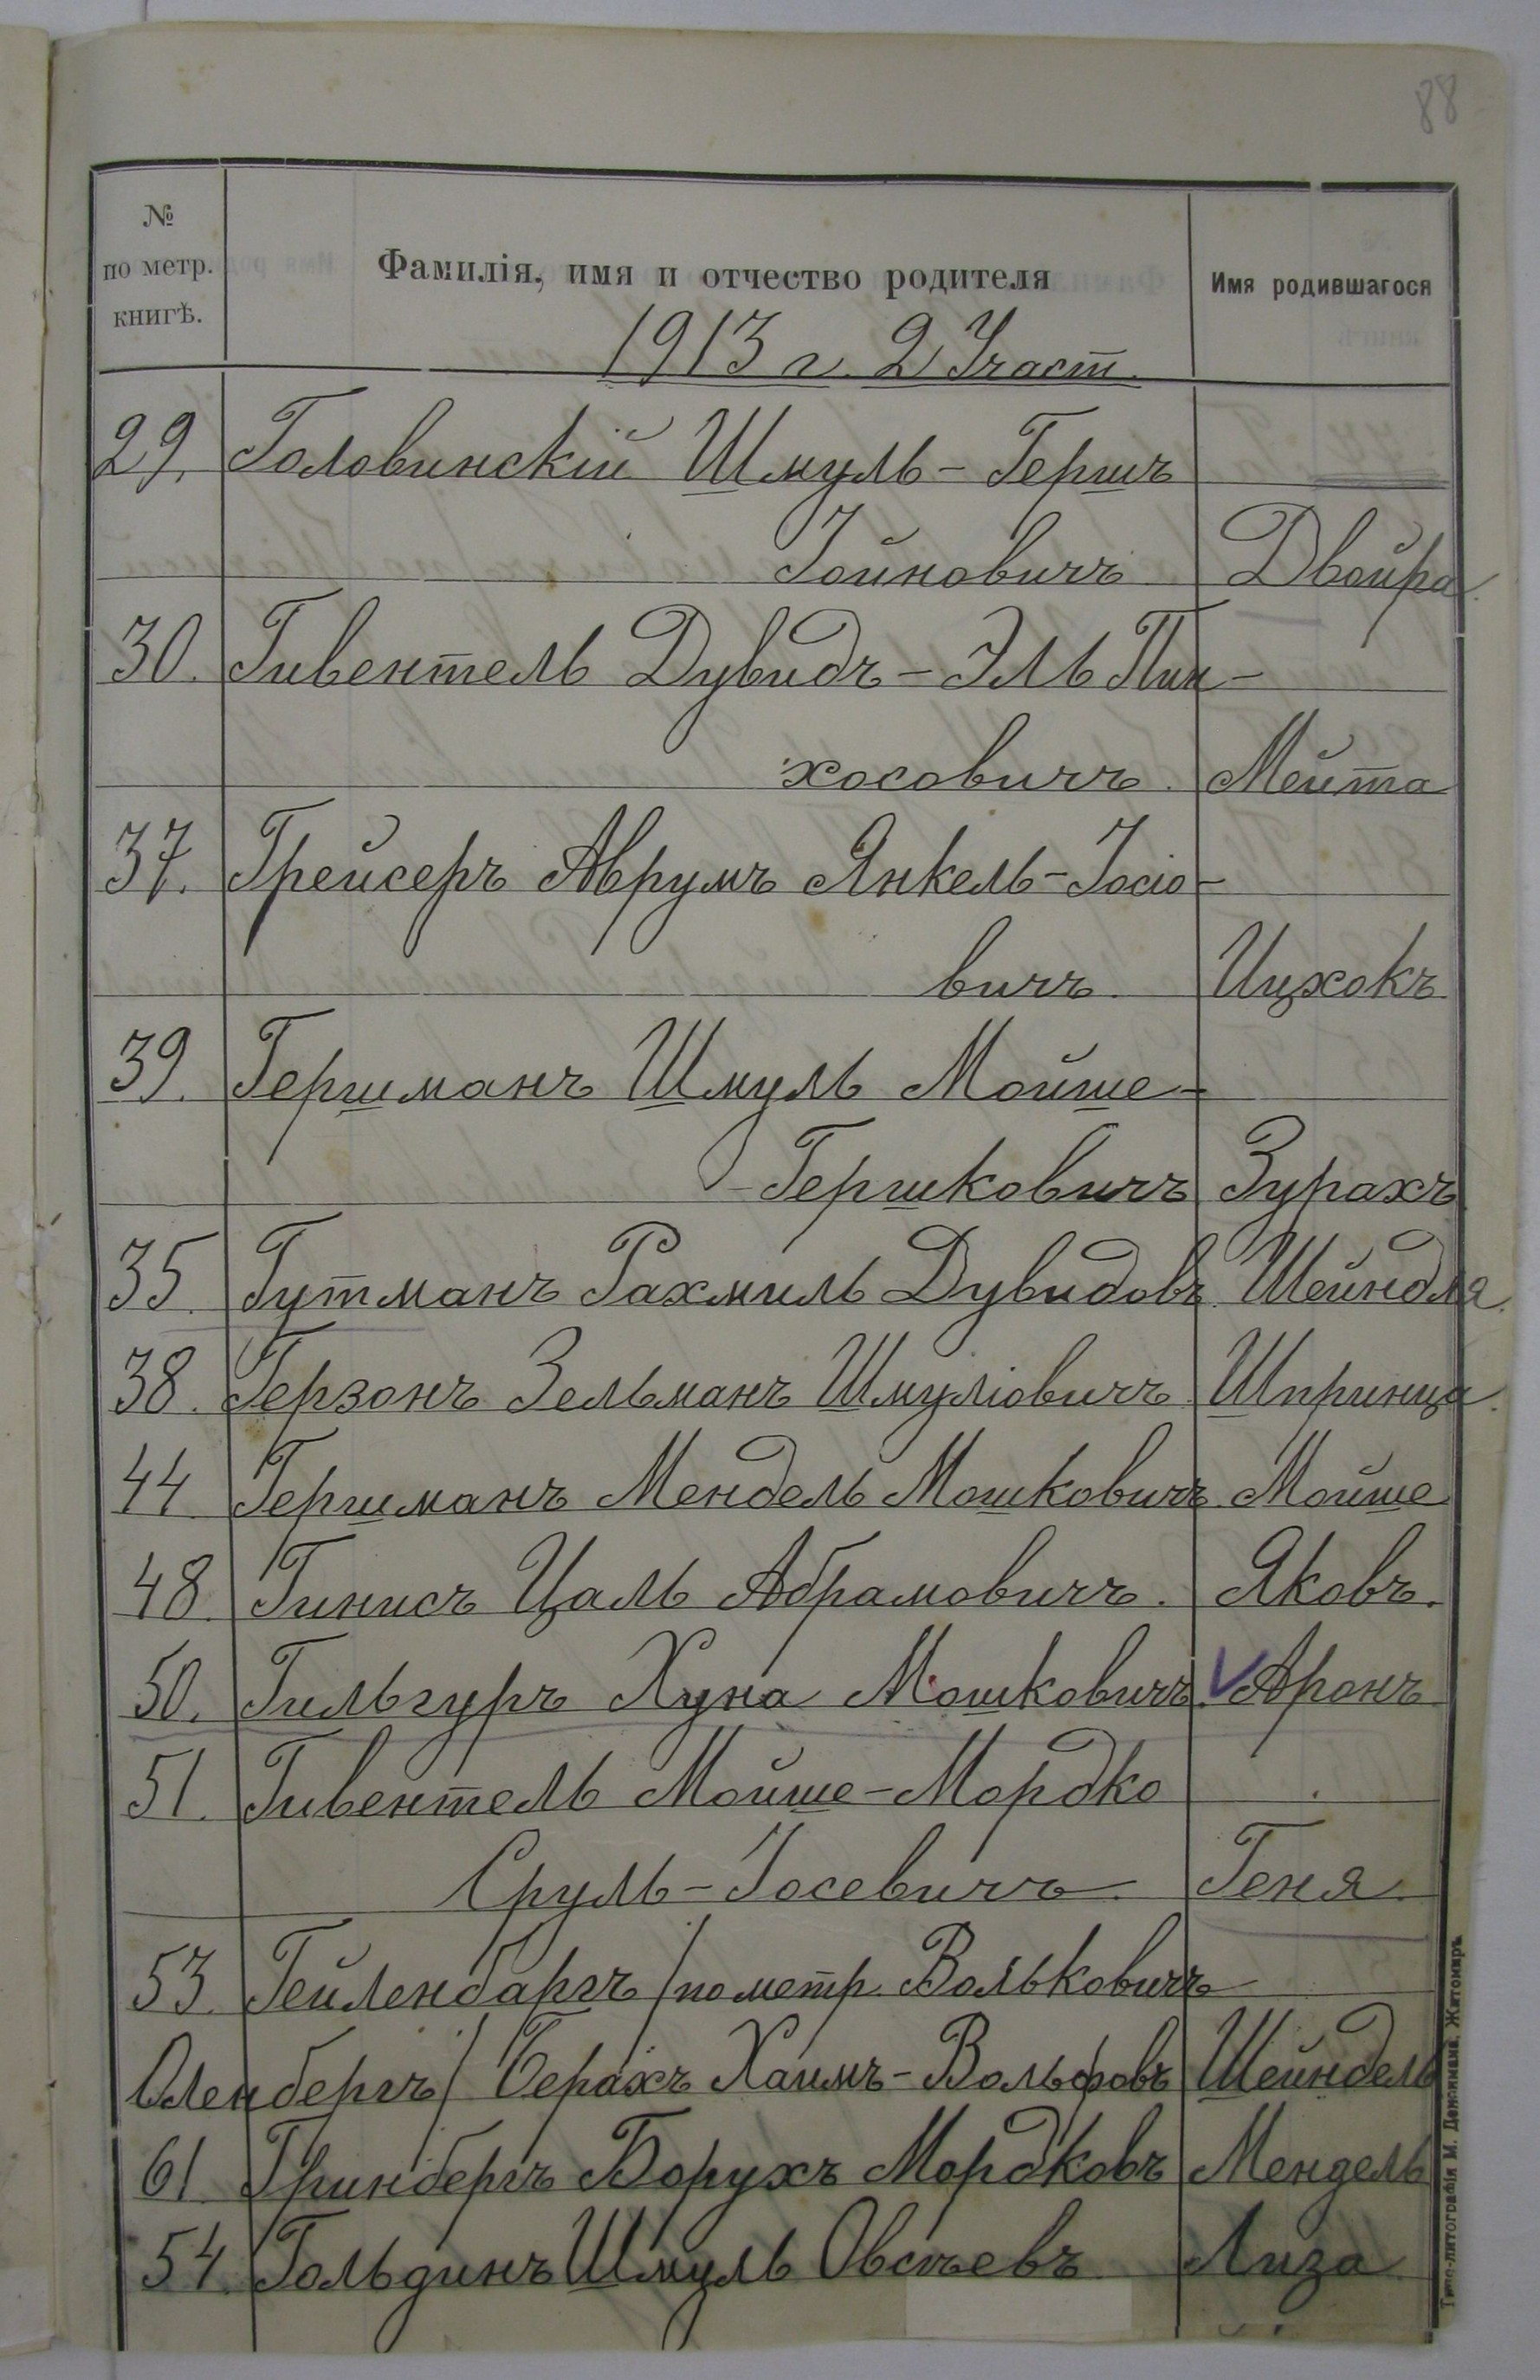 88
№
по метр.
книгѣ.
Фамилія, имя и отчество родителя
Имя родившагося
1913 г. 2 Участ.
29. Головинскій Шмуль-Гершъ
Іойновичъ Двойра
30. Гивентель Дувидъ-Эль Пин-
хосовичъ. Мейта
37. Грейсеръ Аврумъ Янкель-Іосіо-
вичъ. Ицхокъ
39. Гершманъ Шмуль Мойше-
-Гершковичъ Зурахъ
35. Гутманъ Рахмиль Дувидовъ. Шейндля.
38. Герзонъ Зельманъ Шмуліовичъ. Шпринца.
44 Гершманъ Мендель Мошковичъ. Мойше
48. Гинисъ Цаль Абрамовичъ. Яковъ.
50. Гильгуръ Хуна Мошковичъ. Аронъ
51. Гивентель Мойше-Мордко
Сруль-Іосевичъ. Геня.
53. Гейленбаргъ /по метр. Вольковичъ
Оленбергъ/ Берахъ Хаимъ-Вольфовъ Шейндель
61. Гринбергъ Борухъ Мордковъ Мендель
54. Гольдинъ Шмуль Овсѣевъ Лиза
Типо-литографія М. Дененмана. Житомиръ